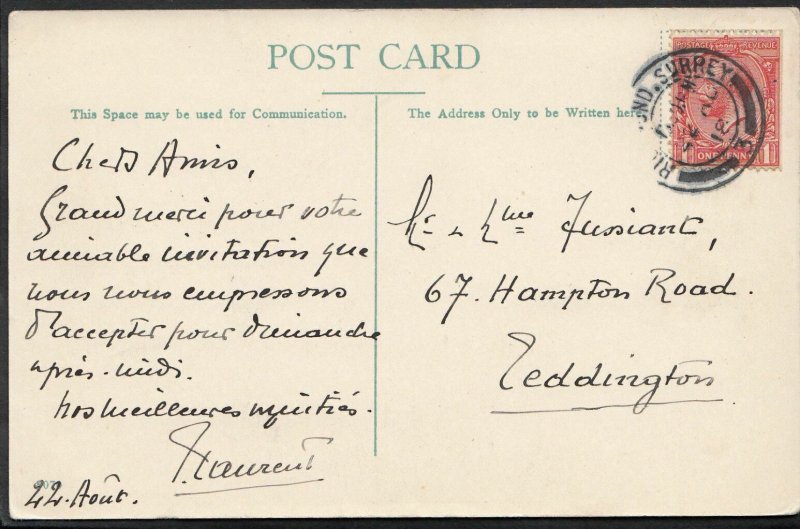 POST CARD
This Space may be used for Communication.
The Address Only to be Written here
POSTAGE REVENUE
ONE PENNY
SURREY
Chers Amis,
Grand merci pour votre
aimable invitation que
nous nous empressons
d'accepter pour dimanche
après-midi.
Nos meilleures amitiés.
Laurent
22. Août.
Mr & Mme Jussiant,
67. Hampton Road.
Teddington